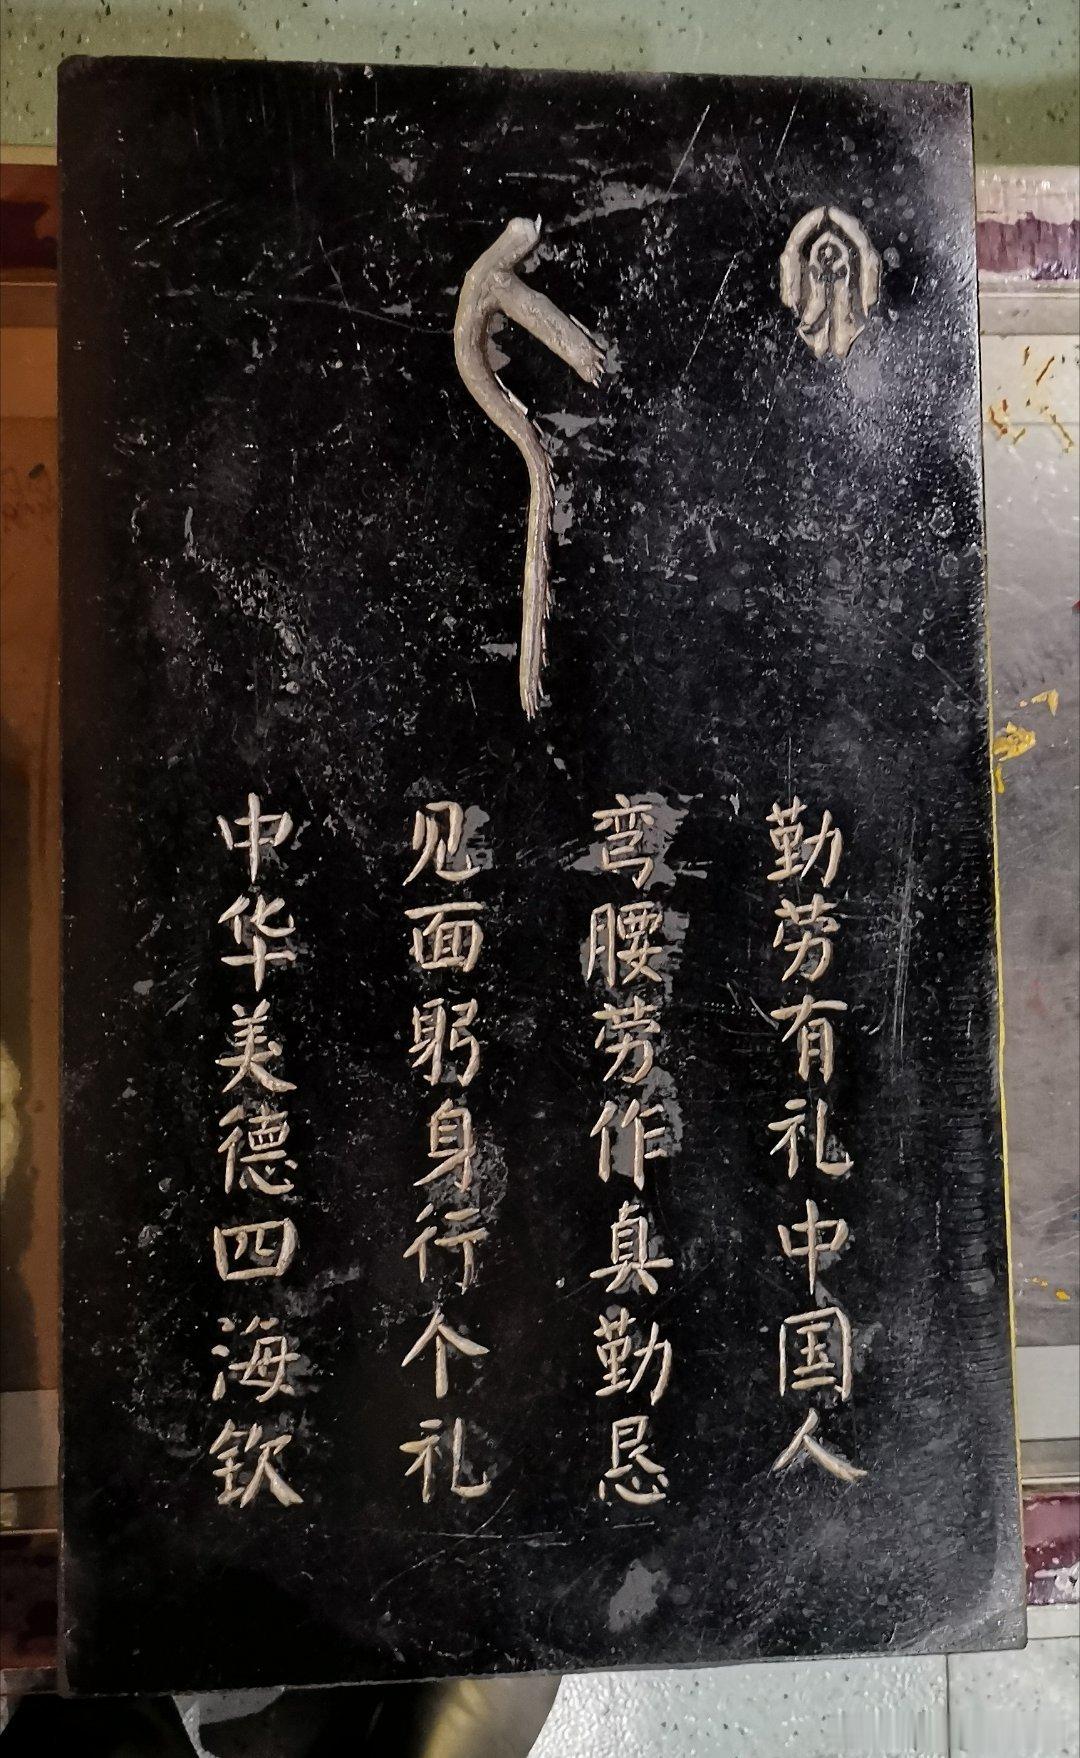 勤劳有礼中国人
弯腰劳作真勤恳
见面躬身行个礼
中华美德四海钦